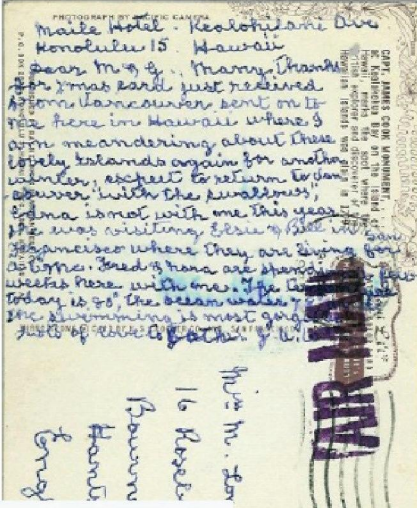 PHOTOGRAPH BY PACIFIC CAMERA
Maile Hotel. Kealohilani Ave
Honolulu 15. Hawaii
Dear M & G. Many thanks
for Xmas card just received
from Vancouver sent on to
me here in Hawaii where I
am meandering about these
lovely Islands again for another
winter, expect to return to Van
couver "with the swallows",
is not with me this year
she was visiting Elsie & Bill in San
Francisco where they are living for
a time. Fred & Nora are spending a few
weeks here with me. The
today is 80°, the ocean water
the swimming is most
lots of love to
CAPT. JAMES COOK MONUMENT,
at Kealakekua Bay on the island of
Hawaii
Hawaiian Islands
AIR MAIL
Miss M. Lo
16 Rosel
Bourn
Hant
Eng